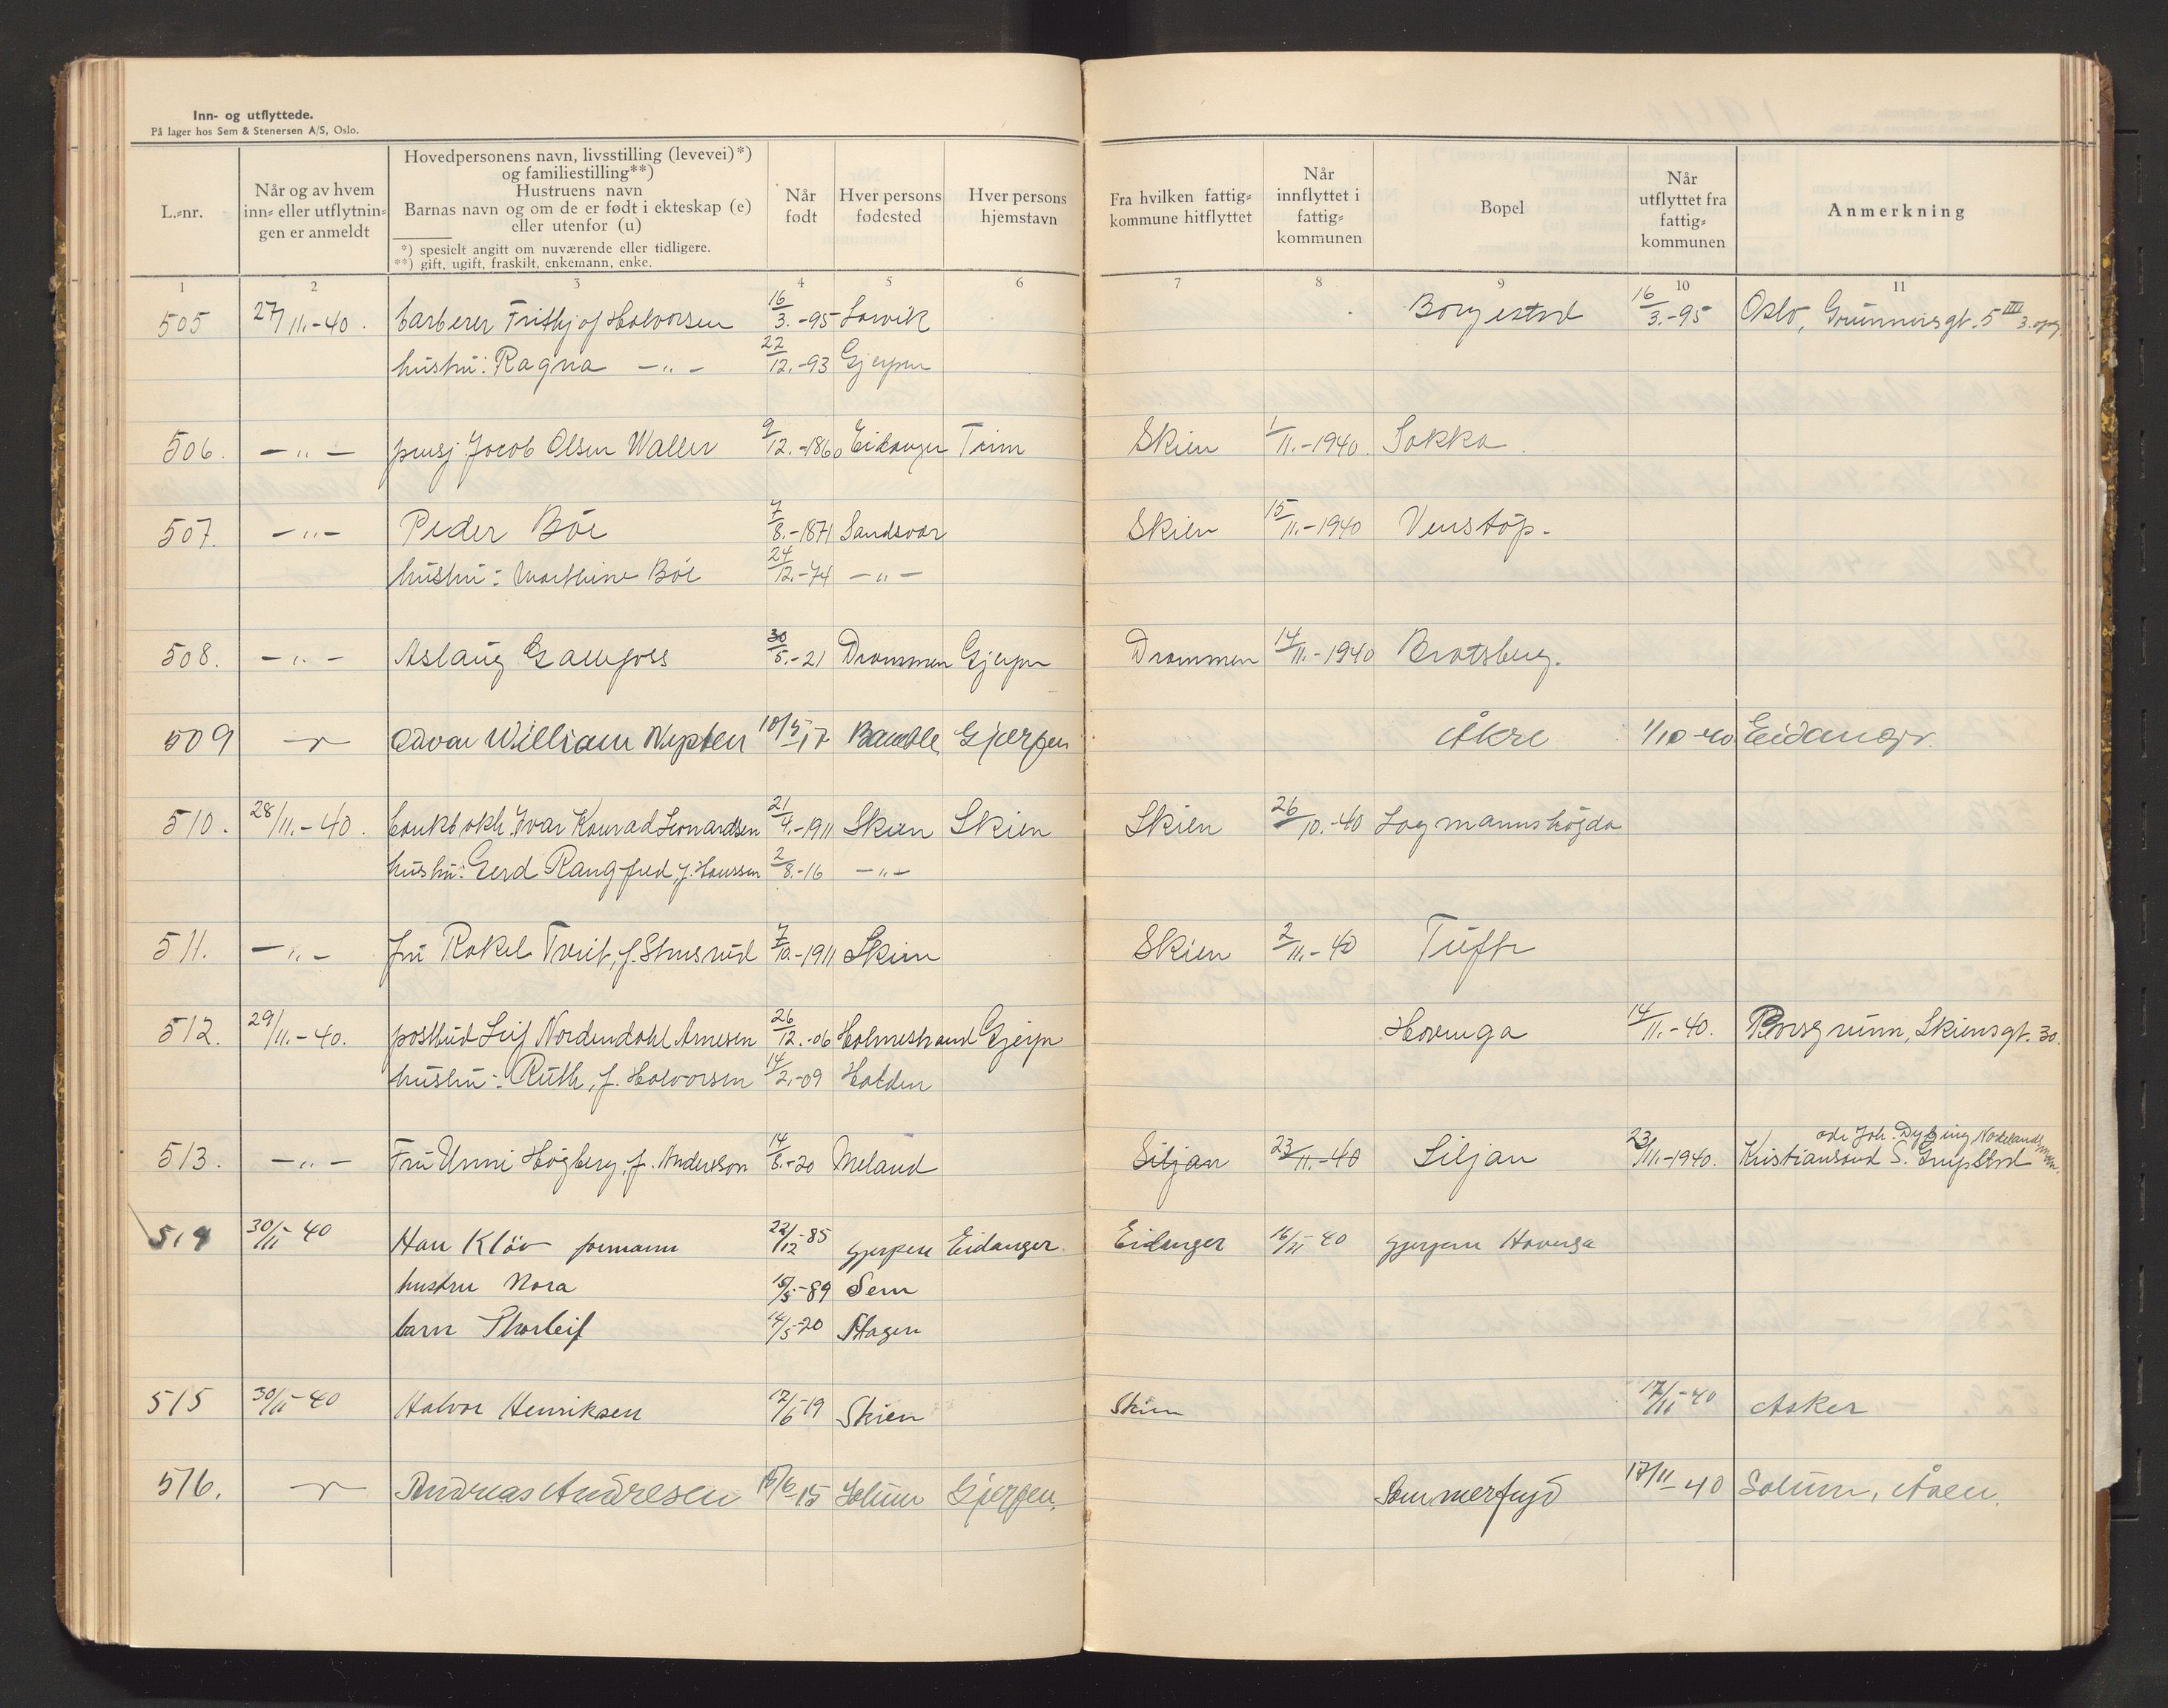 Inn- og utflyttede.
På lager hos Sem & Stenersen A/S, Oslo.
L.-nr.
Når og av hvem inn- eller utflytnin-gen er anmeldt
Hovedpersonens navn, livsstilling (levevei)*) og familiestilling**)
Hustruens navn
Barnas navn og om de er født i ekteskap (e) eller utenfor (u)
*) spesielt angitt om nuværende eller tidligere.
**) gift, ugift, fraskilt, enkemann, enke.
Når født
Hver persons fødested
Hver persons hjemstavn
Fra hvilken fattig-kommune hitflyttet
Når innflyttet i fattig-kommunen
Bopel
Når utflyttet fra fattig-kommunen
Anmerkning
1 2 3 4 5 6 7 8 9 10 11
505 27/11.-40. barberer Frithjof Halvorsen 16/3.-95 Larvik Borgestad 16/3.-95 Oslo, 5 III 3. opg.
hustru: Ragna -"- 22/12.-93 Gjerpen
506. -"- pensj. Jacob Olsen Waller 9/12.-1860 Eidanger Skien 1/11.-1940. Sakka.
507. -"- Peder Böe 7/8.-1871 Sandsvær Skien 15/11.-1940 Venstöp.
hustru: Marthine Böe 24/12.-74 -"-
508. -"- Aslaug 30/5.-21 Drammen Gjerpen Drammen 14/11.-1940 Bratsberg.
509 -"- Odvar William 10/5-17 Bamble Gjerpen Åkre 1/10-40 Eidanger.
510. 28/11.-40. Ivar Konrad Leonardsen 21/4.-1911 Skien Skien Skien 26/10.-40 Lagmannshögda
hustru: Gerd Rangfred, f. Hanssen 2/8.-16 -"-
511. -"- fru Rakel Tveit, f. Stensrud 7/10.-1911 Skien Skien 2/11.-40 Tufte
512. 29/11.-40. postbud Leif Nordendahl Arnesen 26/12.-06 Holmestrand Gjerpen Hovenga 14/11.-40. Porsgrunn, Skiensgt. 30.
hustru: Ruth, f. Halvorsen 14/2.-09 Halden
adr. Joh. Dybing, Nodeland
513. -"- Fru Unni Högberg, f. Anderson 14/8.-20 Meland Siljan 23/11.-40 Siljan 23/11.-1940. Kristiansand S.
514 30/11-40 Hans Klöv formann 22/12-85 Gjerpen Eidanger Eidanger 16/11-40 Gjerpen Hovenga
hustru Nora 15/5-89 Sem
barn Thorleif 14/5-20 Skagen
515 30/11-40 Halvor Henriksen 17/6-19 Skien Skien 17/11-40 Asker
516. -"- Andreas Andresen 15/6-15 Solum Gjerpen. Sommerfryd 17/11-40 Solum, Åsen.